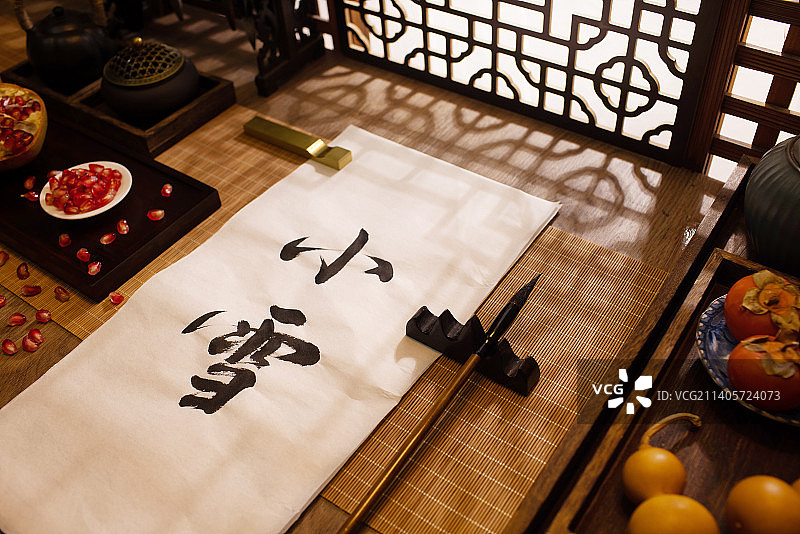 小
雪
VCG
ID:VCG211405724073